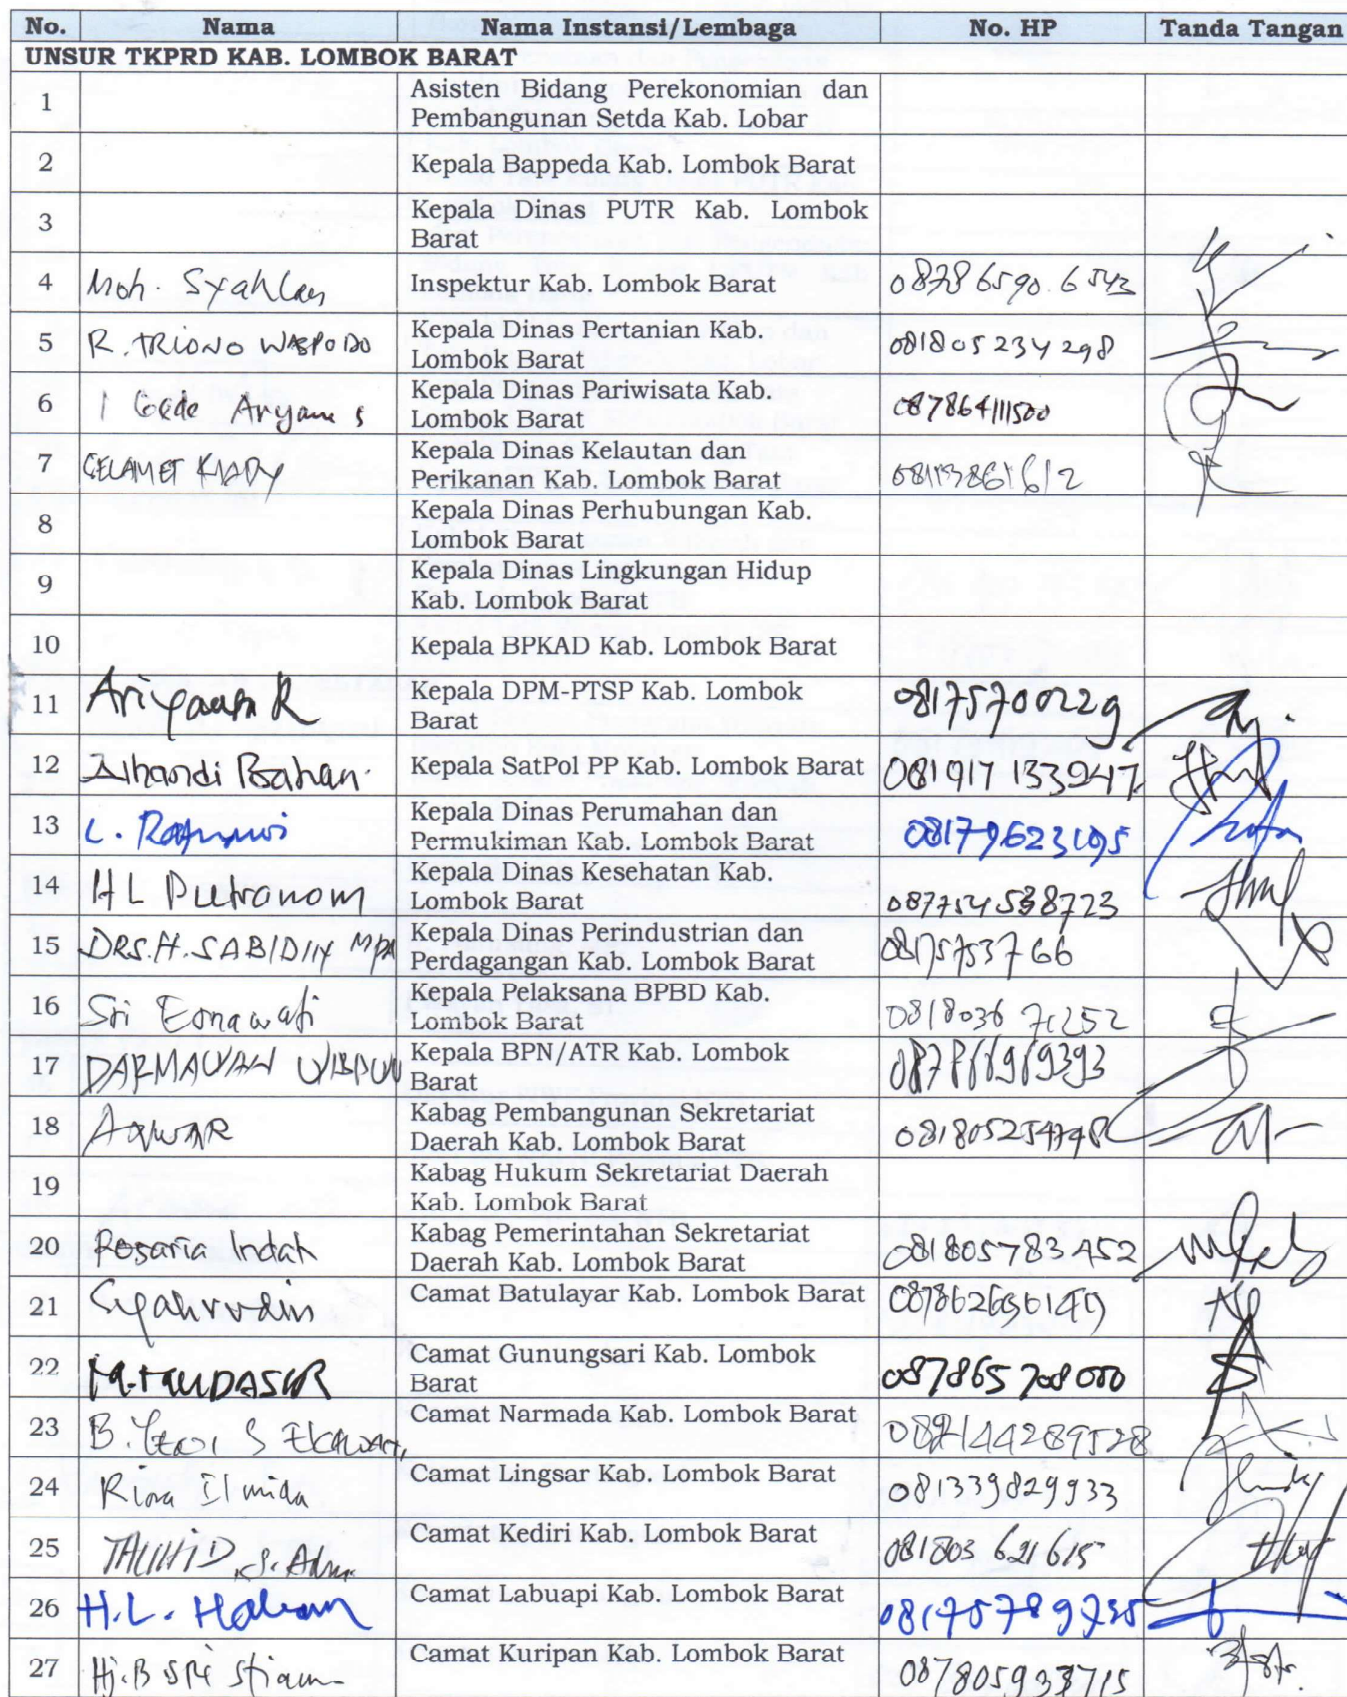 No. Nama Nama Instansi/Lembaga No. HP Tanda Tangan
UNSUR TKPRD KAB. LOMBOK BARAT
1 Asisten Bidang Perekonomian dan
Pembangunan Setda Kab. Lobar
2 Kepala Bappeda Kab. Lombok Barat
3 Kepala Dinas PUTR Kab. Lombok
Barat
4 Moh. Syahlan Inspektur Kab. Lombok Barat 087865906543
5 R. TRIONO WASPODO Kepala Dinas Pertanian Kab. 081805234298
Lombok Barat
6 I Gede Aryana S Kepala Dinas Pariwisata Kab. 087864111500
Lombok Barat
7 Kepala Dinas Kelautan dan
Perikanan Kab. Lombok Barat 08113861612
8 Kepala Dinas Perhubungan Kab.
Lombok Barat
9 Kepala Dinas Lingkungan Hidup
Kab. Lombok Barat
10 Kepala BPKAD Kab. Lombok Barat
11 Kepala DPM-PTSP Kab. Lombok 08175700229
Barat
12 Kepala SatPol PP Kab. Lombok Barat 081917 133947
13 Kepala Dinas Perumahan dan
Permukiman Kab. Lombok Barat
14 HL Putranom Kepala Dinas Kesehatan Kab.
Lombok Barat 087754538723
15 DRS. H. SABIDIN MPA Kepala Dinas Perindustrian dan 08175753766
Perdagangan Kab. Lombok Barat
16 Sri Ernawati Kepala Pelaksana BPBD Kab. 0818036 71252
Lombok Barat
17 Kepala BPN/ATR Kab. Lombok
Barat
18 Kabag Pembangunan Sekretariat
Daerah Kab. Lombok Barat
19 Kabag Hukum Sekretariat Daerah
Kab. Lombok Barat
20 Rosaria Indah Kabag Pemerintahan Sekretariat 081805783452
Daerah Kab. Lombok Barat
21 Syahrudin Camat Batulayar Kab. Lombok Barat
22 M. MUDASSIR Camat Gunungsari Kab. Lombok 087865708000
Barat
23 Camat Narmada Kab. Lombok Barat
24 Rina Ilmida Camat Lingsar Kab. Lombok Barat 081339829933
25 Camat Kediri Kab. Lombok Barat 081803 621615
26 H.L. Camat Labuapi Kab. Lombok Barat 08175789735
27 Camat Kuripan Kab. Lombok Barat 087805933715